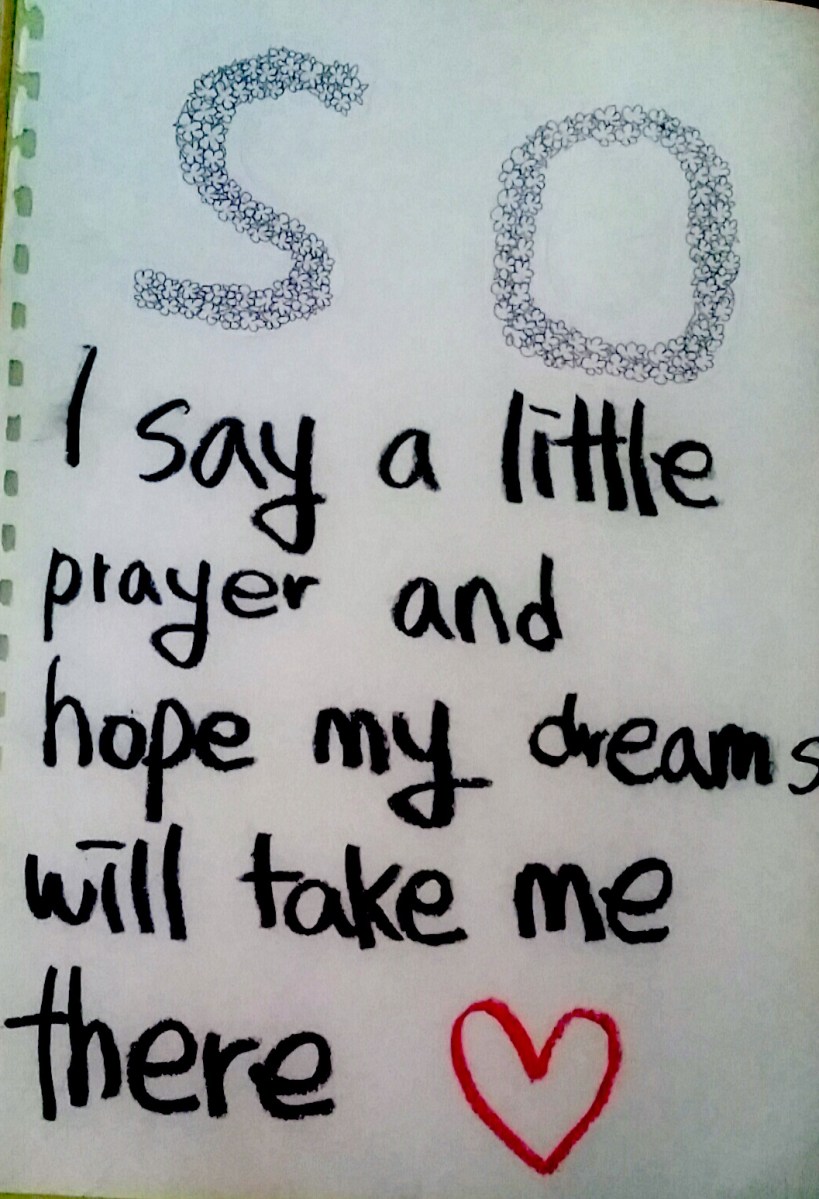 SO
I say a little
prayer and
hope my dreams
will take me
there